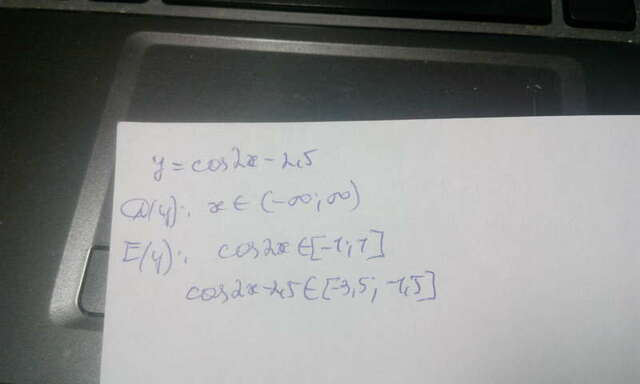 y = cos2x - 2,5
D(y): x ∈ (-∞; ∞)
E(y): cos2x ∈ [-1; 1]
cos2x - 2,5 ∈ [-3,5; -1,5]